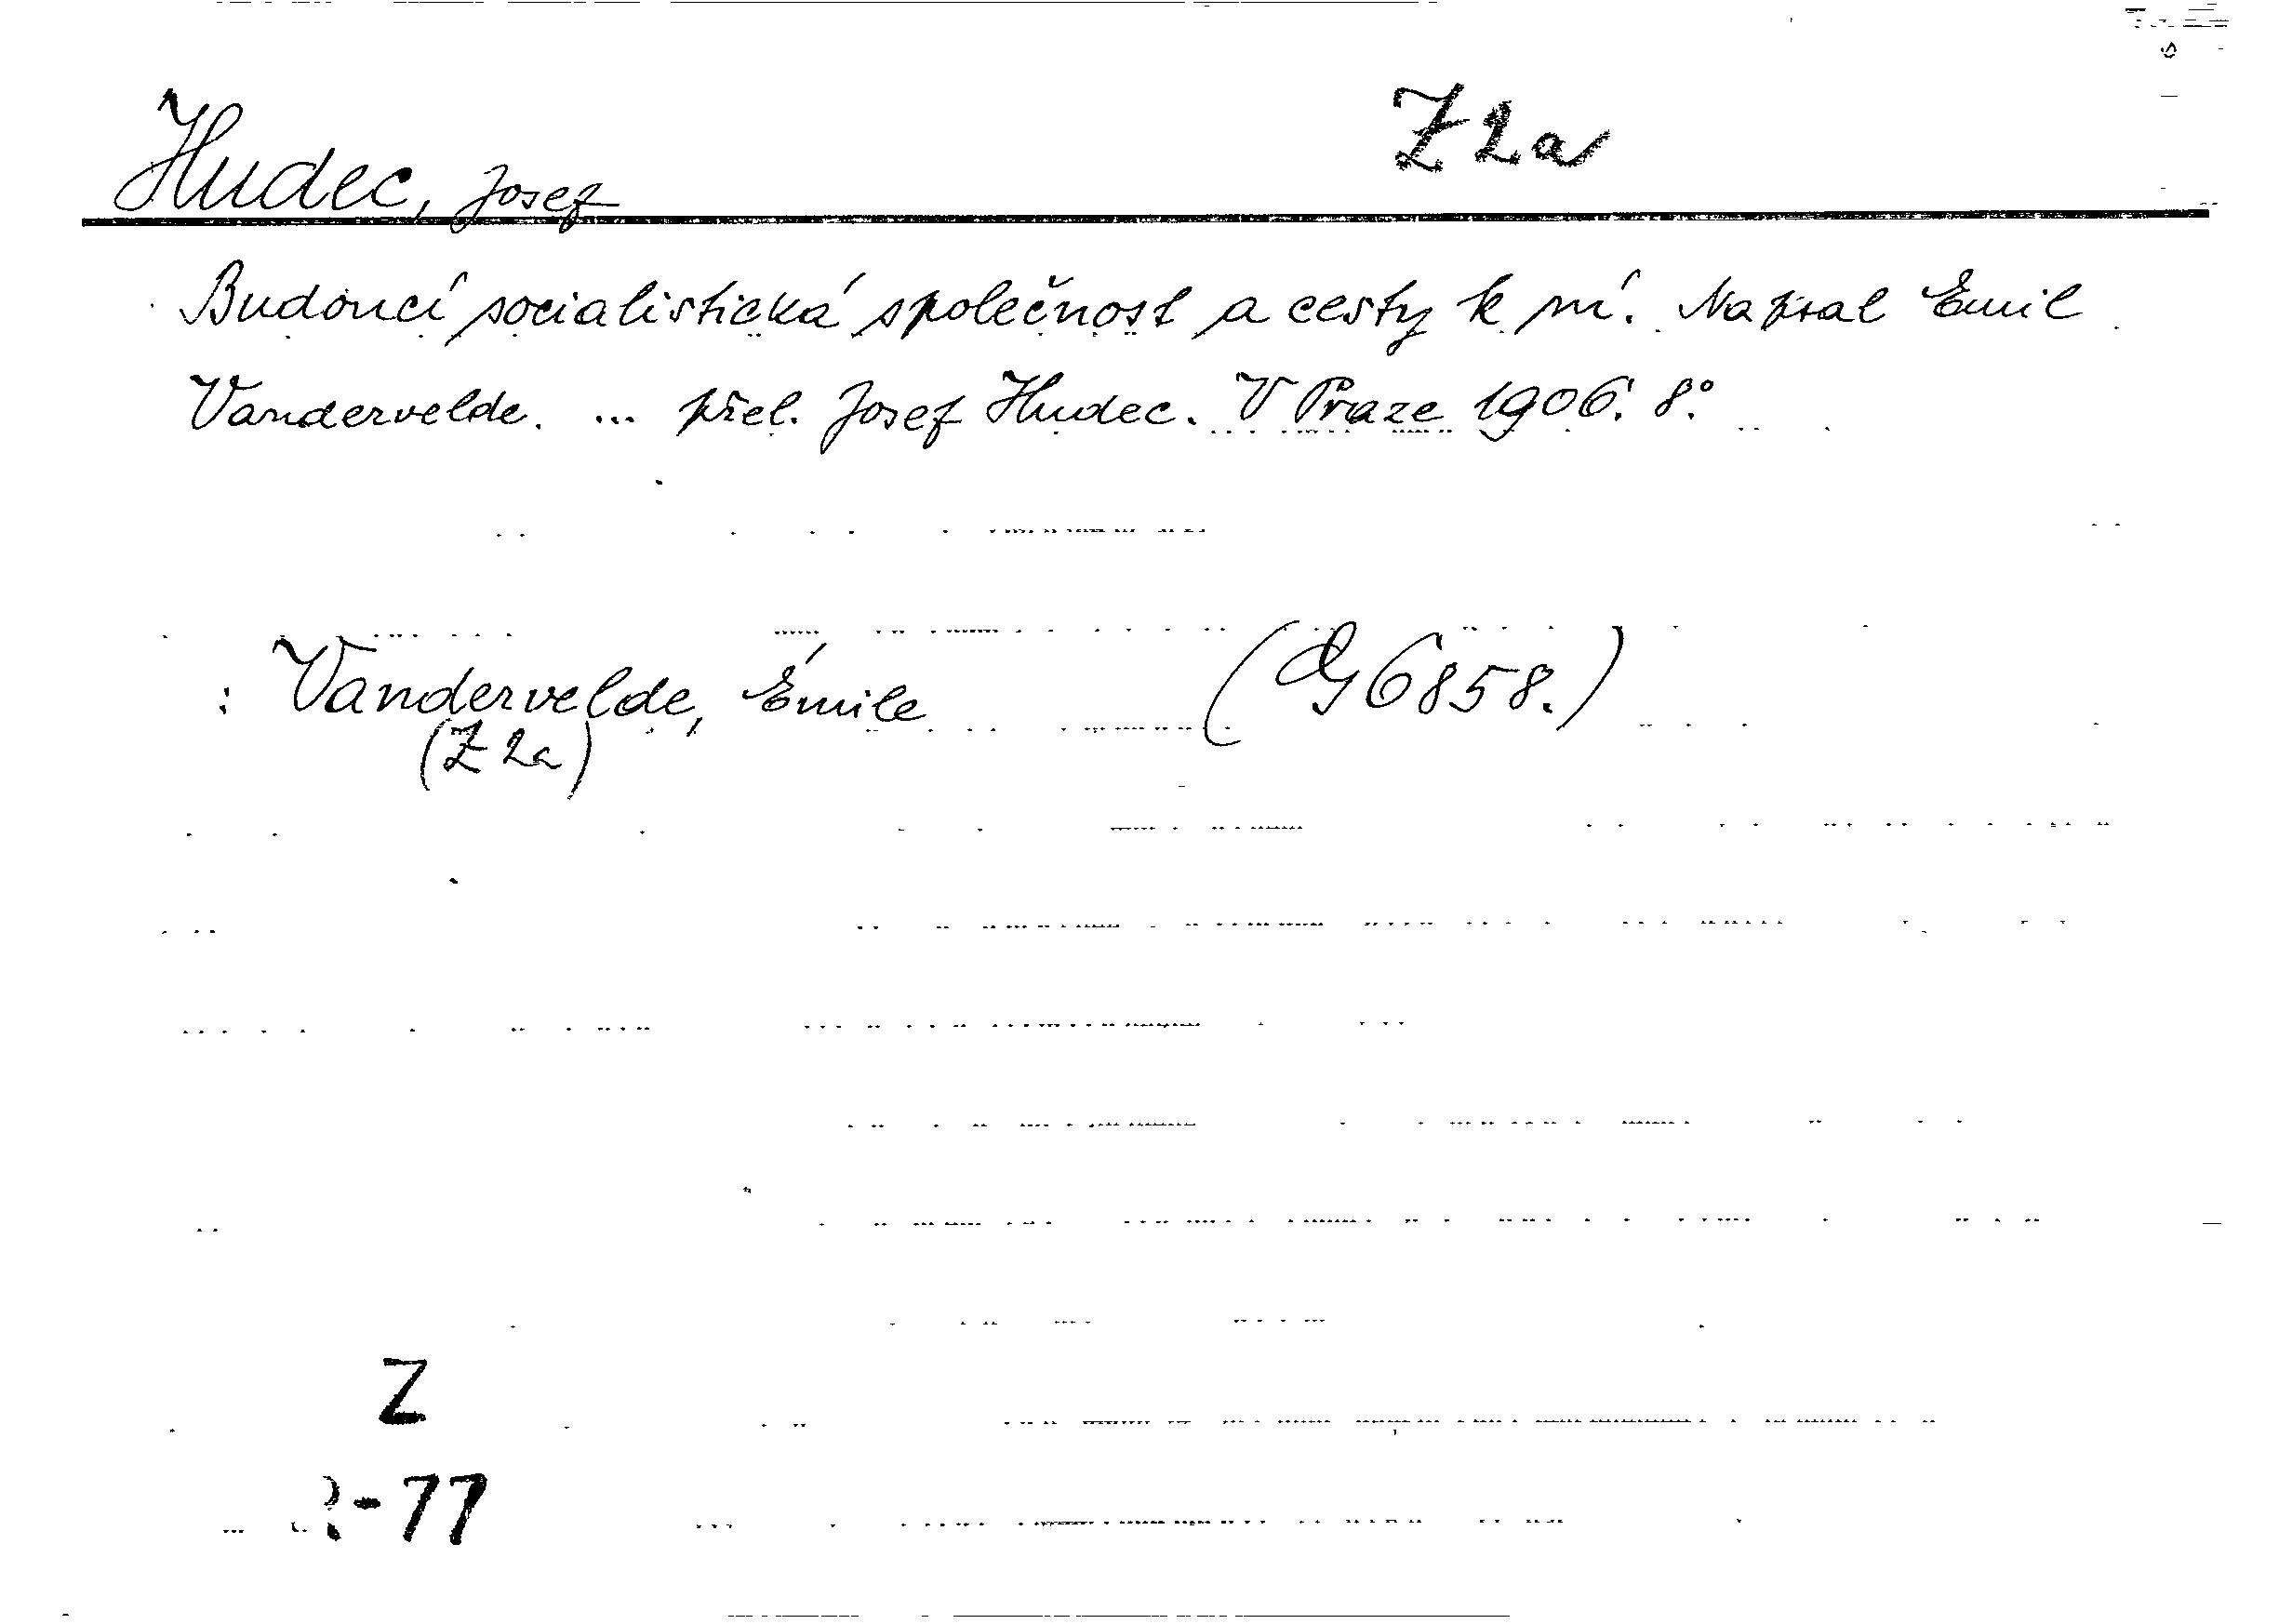 Hudec, Josef Z 2a
Budoucí socialistická společnost a cesty k ní. Napsal Emil
Vandervelde. ... přel. Josef Hudec. V Praze 1906. 8.°
: Vandervelde, Émile (G 6858.)
(Z 2a)
Z
-77